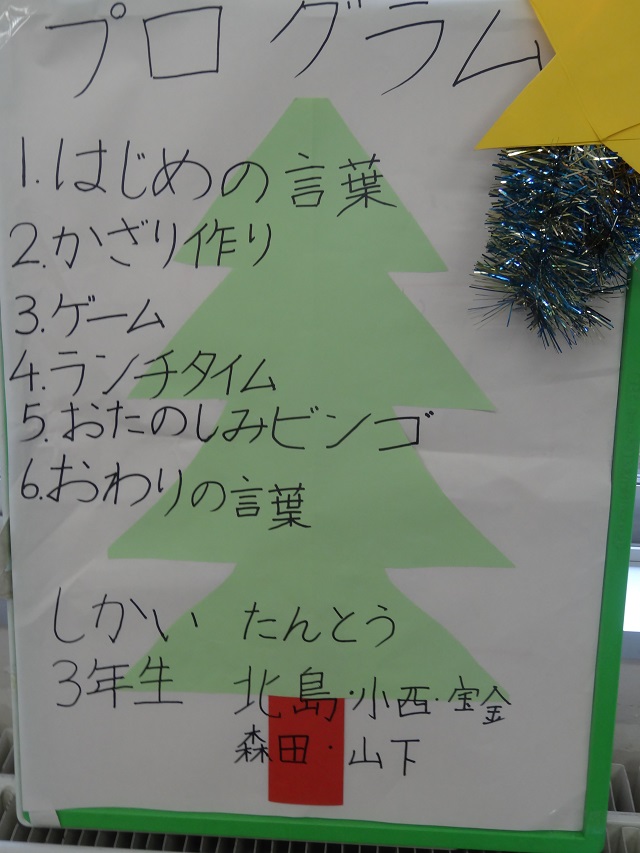 プログラム
1.はじめの言葉
2.かざり作り
3.ゲーム
4.ランチタイム
5.おたのしみビンゴ
6.おわりの言葉
しかい たんとう
3年生 北島・小西・宝金
森田・山下